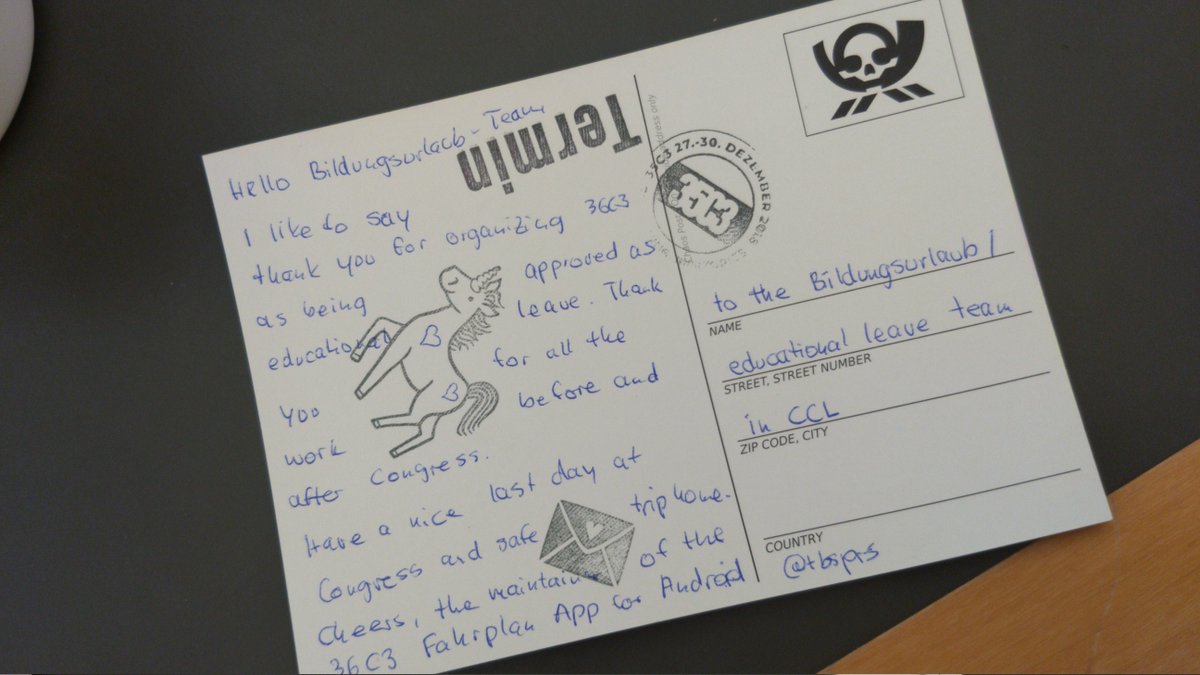 Hello Bildungsurlaub-Team,
Termin
I like to say
thank you for organizing 36C3
as being approved as
educational leave. Thank
you for all the
work before and
after Congress.
Have a nice last day at
Congress and safe trip home.
Cheers, the maintainer of the
36C3 Fahrplan App for Android
35C3 27.-30. DEZEMBER 2018
35C3
address only
to the Bildungsurlaub /
NAME
educational leave team
STREET, STREET NUMBER
in CCL
ZIP CODE, CITY
COUNTRY